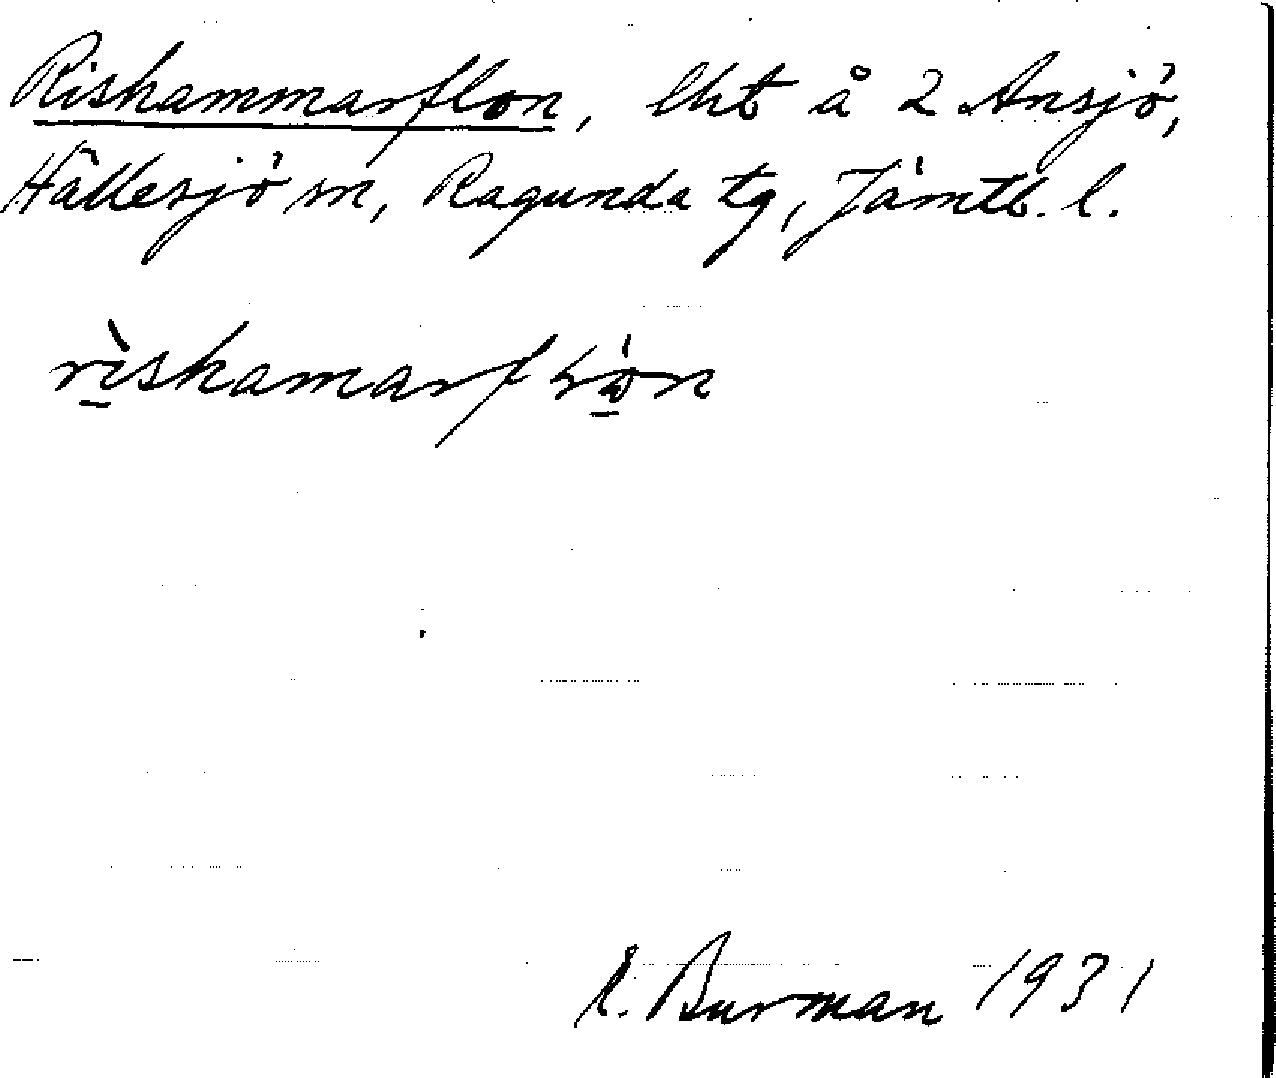 Riskammarflon, lht å 2 Ansjö,
Hällesjö sn, Ragunda tg, Jämtl. l.
rı̀skamarfɬòn
E. Burman 1931